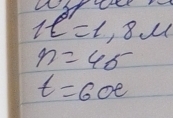 h=1,8м
n=45
t=60с